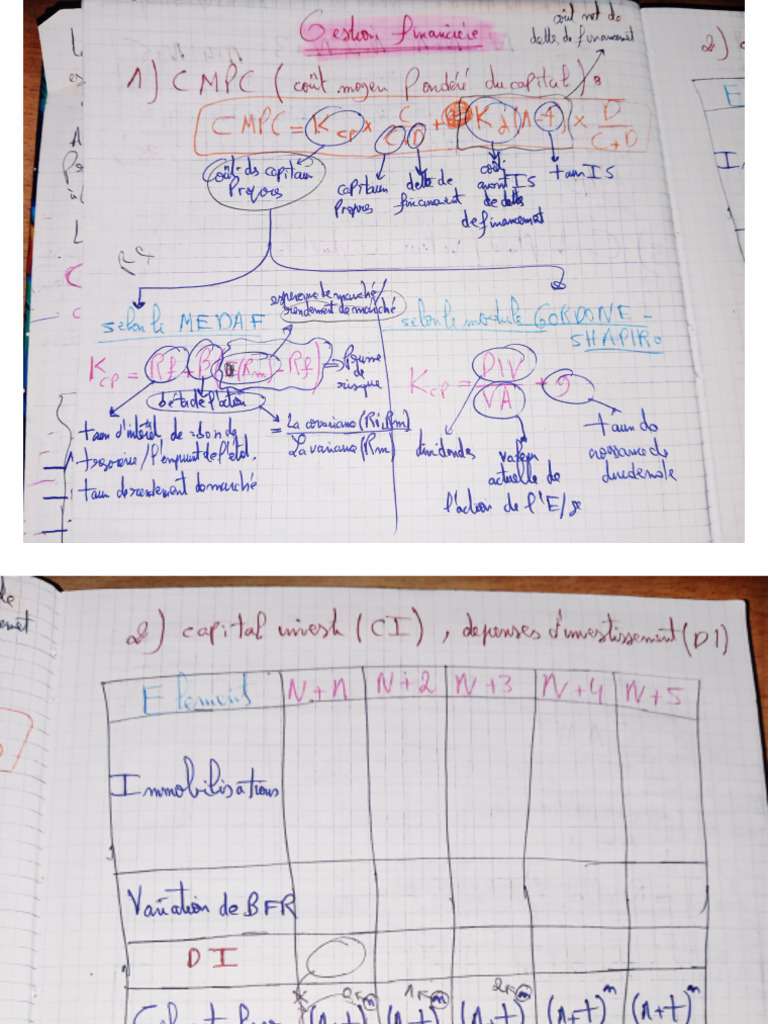 Gestion financière
coût net de
dette de financement
1) CMPC (coût moyen Pondéré du capital) :
CMPC = Kcp × C/C+D + Kd(1-t) × D/C+D
Coût des capitaux
Propres
capitaux
Propres
dette de
financement
coût
avant IS
de dette
de financement
taux IS
espérance de marché/
rendement de marché
selon le MEDAF
selon le module GORDONE-
SHAPIRO
Kcp = Rf + B [E(Rm) - Rf] = Prime
de
risque
Kcp = DIV/VA + g
bêta de l'action
taux d'intérêt de bon de
trésorerie / l'emprunt de l'état.
taux de rendement de marché
= La covariance (Ri, Rm)
La variance (Rm)
dividendes
valeur
actuelle de
l'action de l'E/se
taux de
croissance de
dividende
2) capital invesh (CI), depenses d'investissement (DI)
Element N+1 N+2 N+3 N+4 N+5
Immobilisations
Variation de BFR
DI
(1+t) (1+t) (1+t) (1+t)^n (1+t)^n